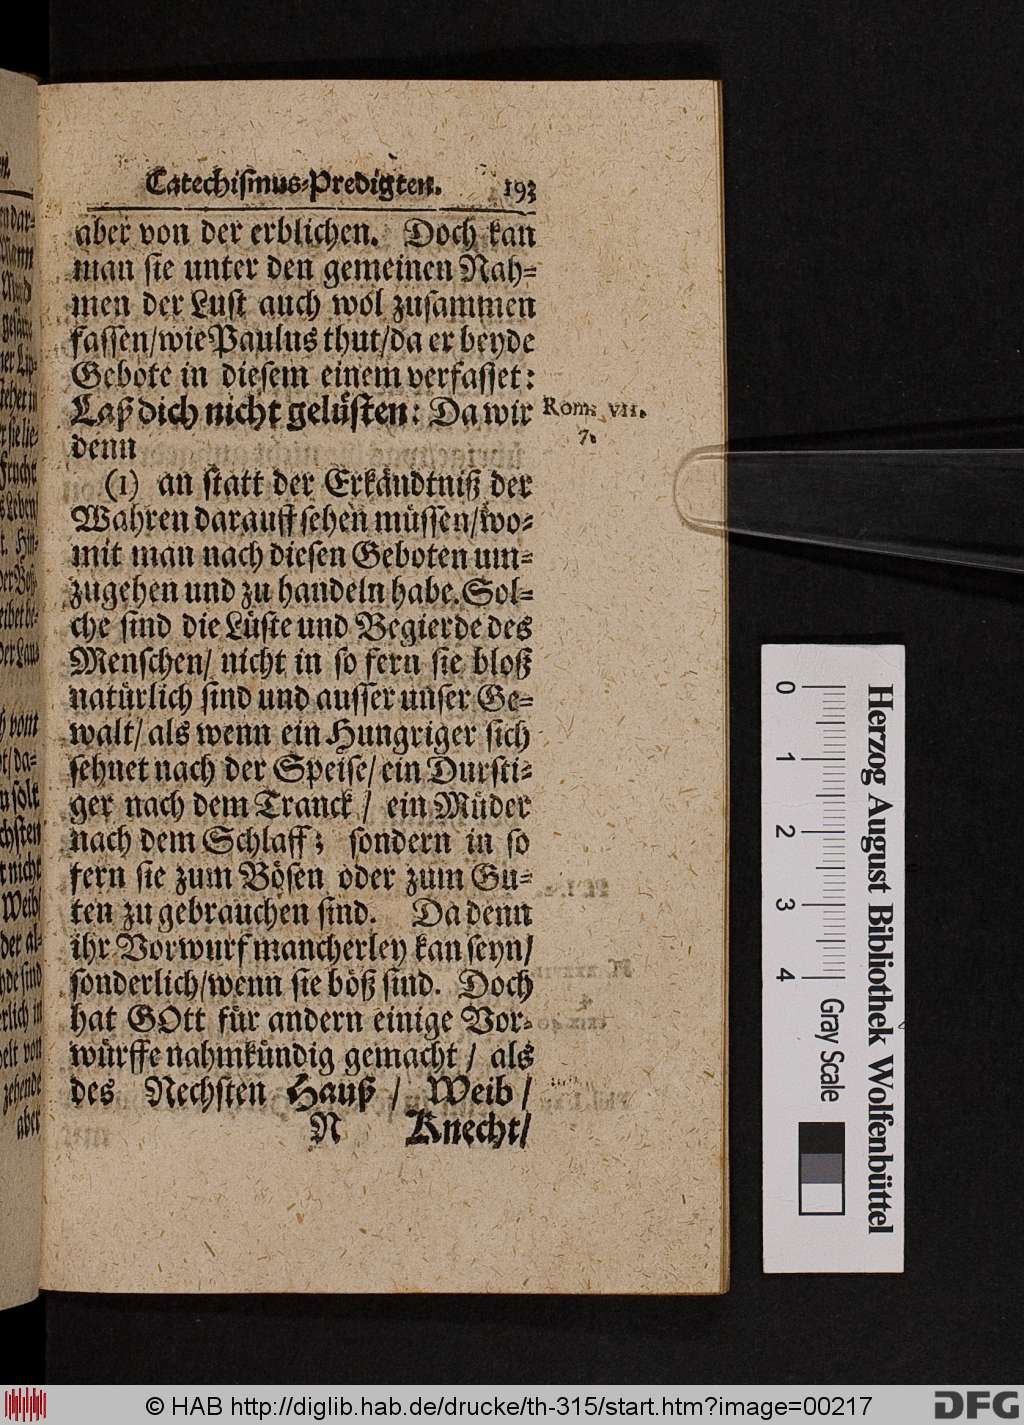 Catechismus-Predigten. 193
aber von der erblichen. Doch kan
man sie unter den gemeinen Nah-
men der Lust auch wol zusammen
fassen/wie Paulus thut/da er beyde
Gebote in diesem einem verfasset:
Laß dich nicht gelüsten: Da wir
Rom. VII.
7.
denn
(1) an statt der Erkändtniß der
Wahren darauff sehen müssen/wo-
mit man nach diesen Geboten um-
zugehen und zu handeln habe. Sol-
che sind die Lüste und Begierde des
Menschen/ nicht in so fern sie bloß
natürlich sind und ausser unser Ge-
walt/ als wenn ein Hungriger sich
sehnet nach der Speise/ ein Dursti-
ger nach dem Tranck / ein Müder
nach dem Schlaff; sondern in so
fern sie zum Bösen oder zum Gu-
ten zu gebrauchen sind. Da denn
ihr Vorwurf mancherley kan seyn/
sonderlich/wenn sie böß sind. Doch
hat GOtt für andern einige Vor-
würffe nahmkündig gemacht / als
des Nechsten Hauß / Weib /
N Knecht/
0 1 2 3 4 Gray Scale
Herzog August Bibliothek Wolfenbüttel
© HAB http://diglib.hab.de/drucke/th-315/start.htm?image=00217
DFG